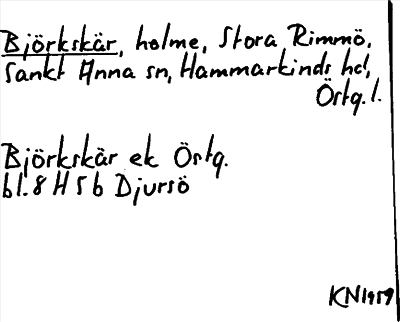 Björkskär, holme, Stora Rimmö,
Sankt Anna sn, Hammarkinds hd,
Östg. l.
Björkskär ek Östg.
bl. 8 H 5 b Djursö
KN 1959